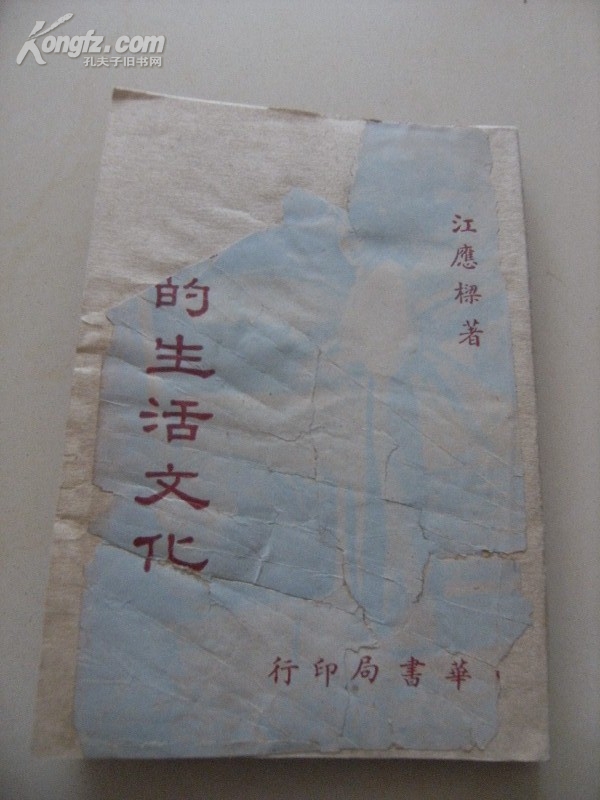 Kongfz.com
孔夫子旧书网
江應樑著
的生活文化
華書局印行